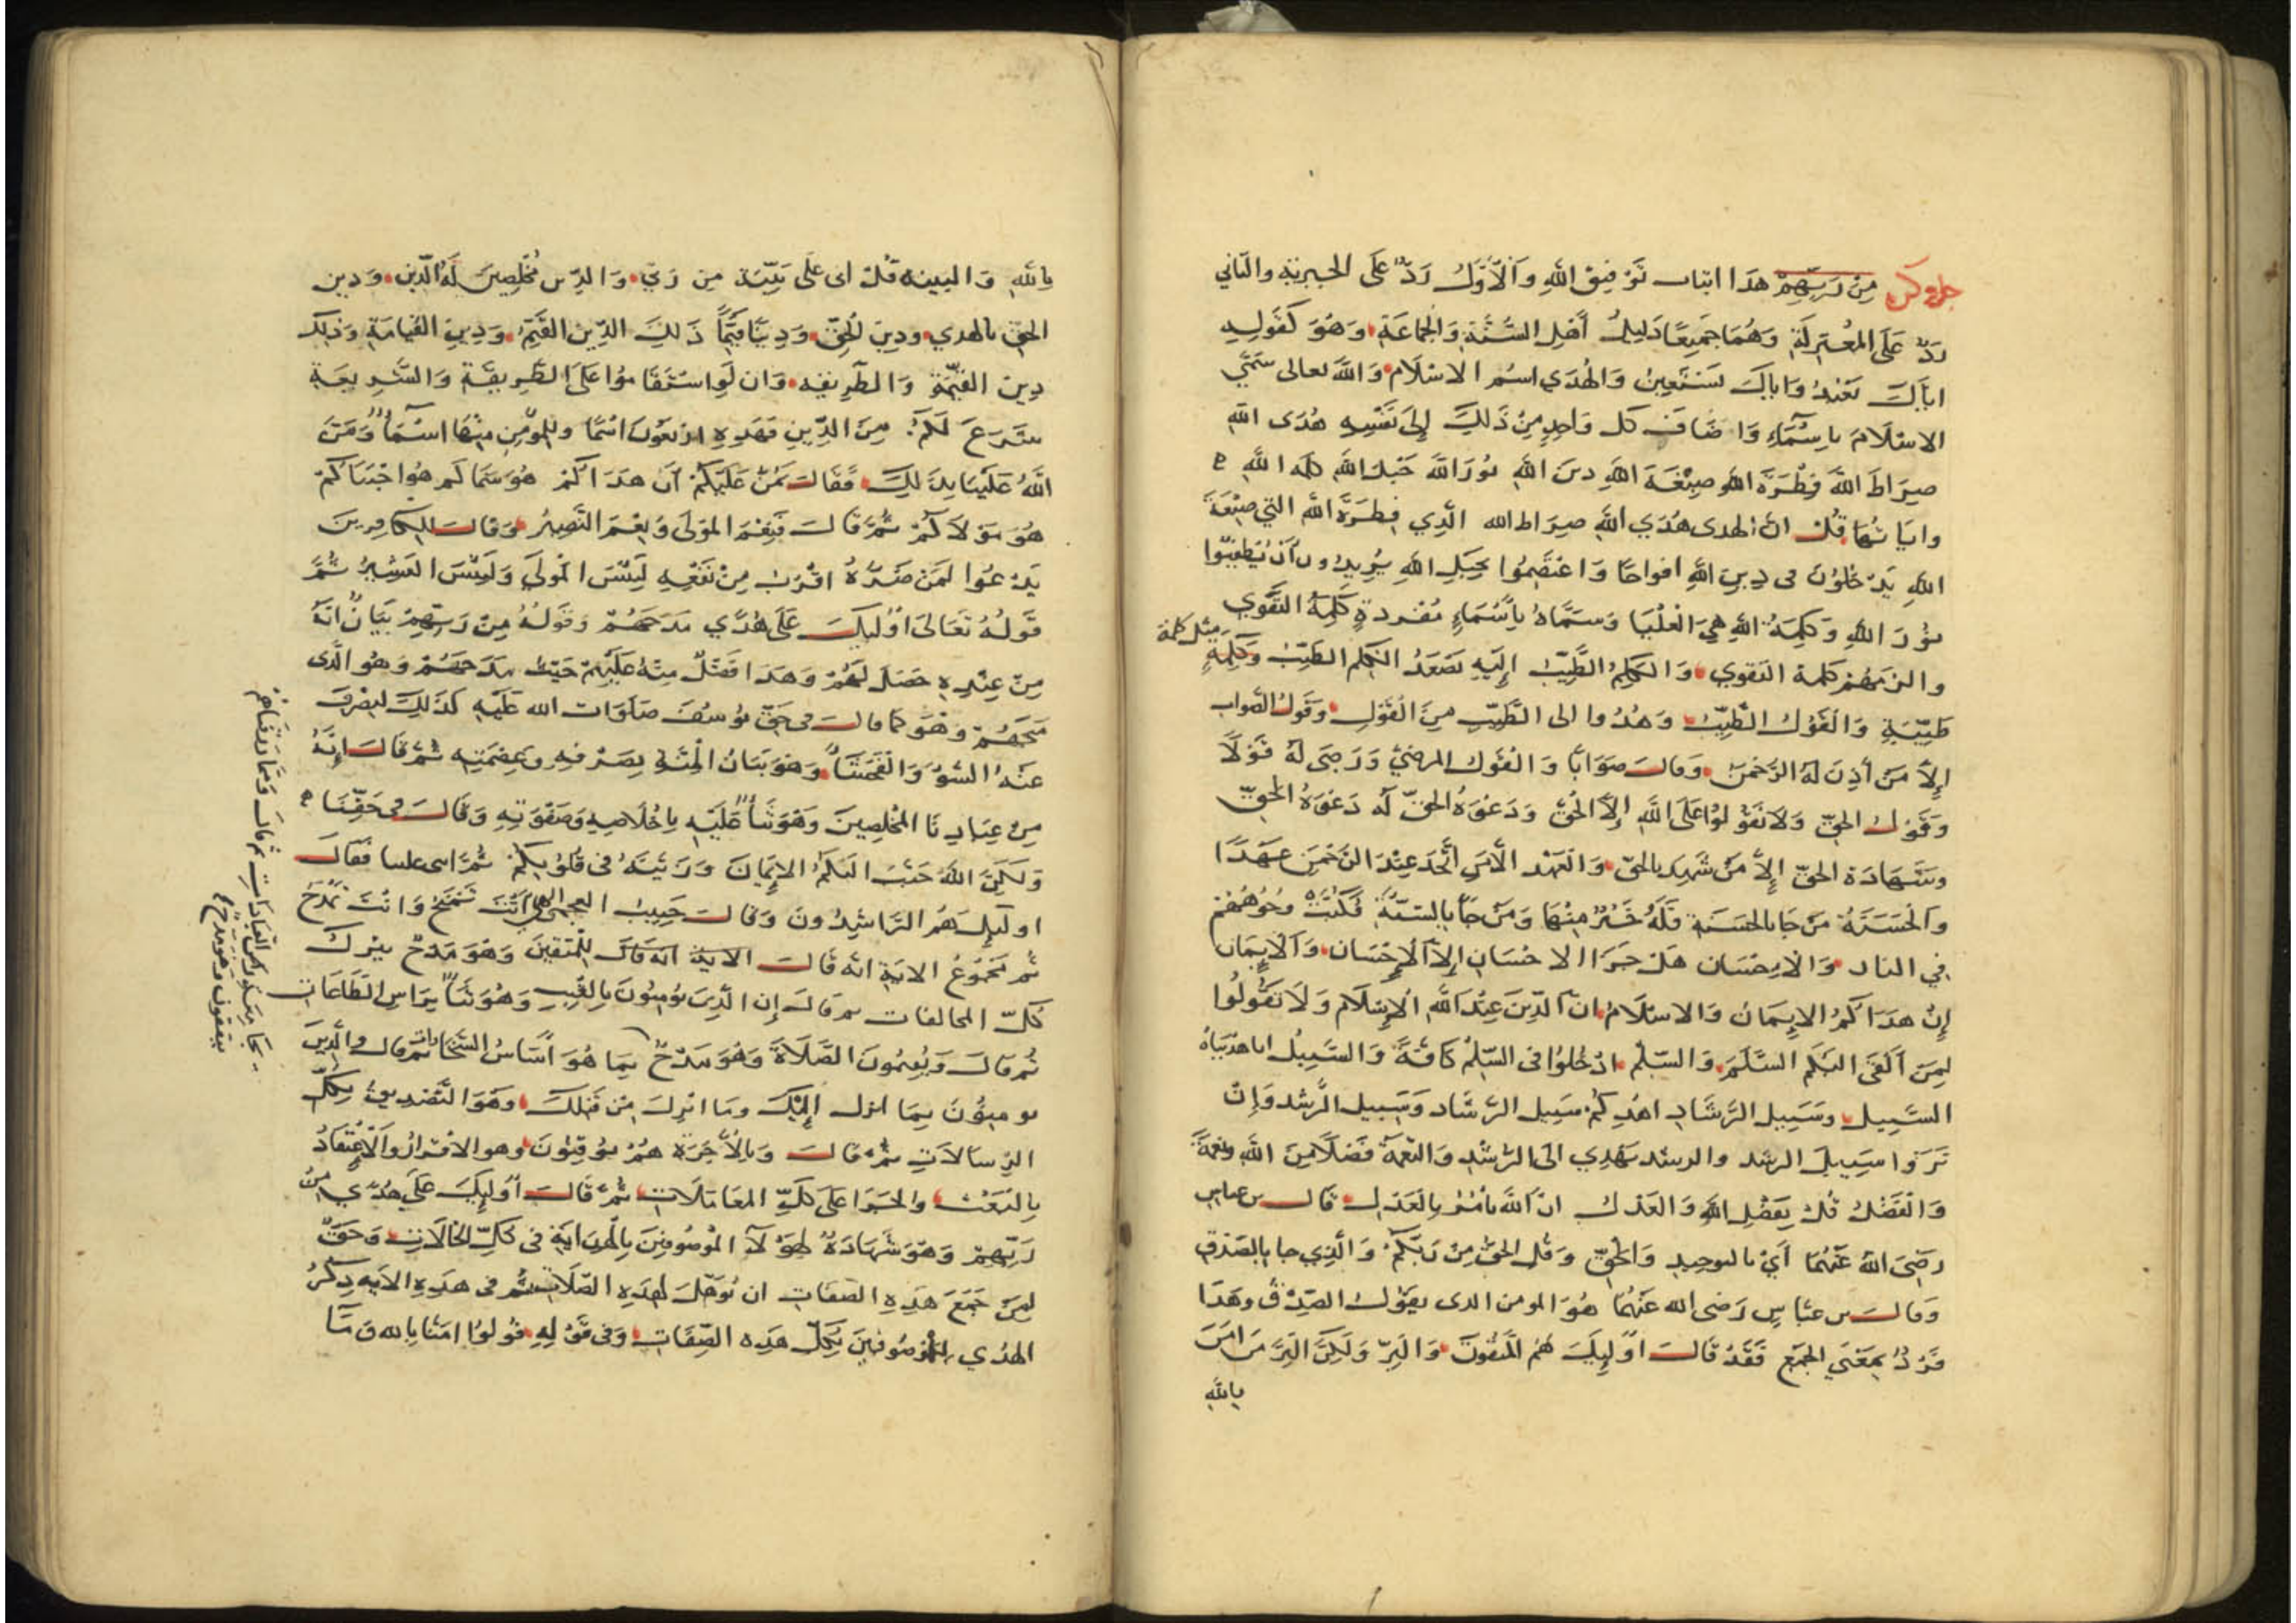 من ربهم هذا اثبات توفيق الله والأول رد على الجبرية والثاني
رد على المعتزلة وهما جميعا دليل أهل السنة والجماعة وهو كقوله
اياك نعبد واياك نستعين والهدى اسم الاسلام والله تعالى سمى
الاسلام باسماء واضاف كل واحد من ذلك إلى نفسه هدى الله
صراط الله فطرة الله صبغة الله دين الله نور الله حبل الله كلمة الله
واياتها قل ان الهدى هدى الله صراط الله الذي فطرة الله التي صبغة
الله يدخلون في دين الله افواجا واعتصموا بحبل الله يريدون أن يطفئوا
نور الله وكلمة الله هي العليا وسماه بأسماء مفردة كلمة التقوى
والزمهم كلمة التقوى والكلم الطيب إليه يصعد الكلم الطيب وكلمة
مثل كلمة
طيبة والقول الطيب وهدوا الى الطيب من القول وقول الصواب
إلا من أذن له الرحمن وقال صوابا والقول المرضي ورضى له قولا
وقول الحق ولا تقولوا على الله إلا الحق ودعوة الحق له دعوة الحق
وشهادة الحق إلا من شهد بالحق والعهد الا من اتخذ عند الرحمن عهدا
والحسنة من جا بالحسنة فله خير منها ومن جا بالسيئة فكبت وجوههم
في النار والاحسان هل جزا الاحسان إلا الاحسان والايمان
إن هداكم الايمان والاسلام ان الدين عند الله الإسلام ولا تقولوا
لمن ألقى اليكم السلم والسلم ادخلوا في السلم كافة والسبيل انا هديناه
السبيل وسبيل الرشاد اهدكم سبيل الرشاد وسبيل الرشد وإن
تروا سبيل الرشد والرشد يهدي الى الرشد والنعمة فضلا من الله ونعمة
والفضل قل بفضل الله والعدل ان الله يأمر بالعدل قال بن عباس
رضي الله عنهما أي بالتوحيد والحق وقل الحق من ربكم والذي جا بالصدق
وقال بن عباس رضى الله عنهما هو المومن الذى يقول الصدق وهذا
فرد بمعنى الجمع فقد قال أوليك هم المتقون والبر ولكن البر من امن
بالله
بالله والبينة قل انى على بينة من ربي والدين مخلصين له الدين ودين
الحق بالهدى ودين الحق ودينا قيما ذلك الدين القيم ودين القيامة وذلك
دين القيمة والطريقه وان لو استقاموا على الطريقة والشريعة
شرع لكم من الدين فهذه اربعون اسما وللمؤمن منها اسما ومن
الله علينا بذلك فقال يمن عليكم أن هداكم هو سماكم هو اجتباكم
هو مولاكم ثم قال فنعم المولى ونعم النصير وقال للكافرين
يدعوا لمن ضره اقرب من نفعه لبئس المولى ولبئس العشير ثم
قوله تعالى اوليك على هدى مدحهم وقوله من ربهم بيان انه
من عنده حصل لهم وهذا فضل منه عليهم حيث مدحهم وهو الذى
منحهم وهو كما قال في حق يوسف صلوات الله عليه كذلك لنصرف
عنه السوء والفحشا وهو بيان المثل بصرفه وعصمته ثم قال إنه
من عبادنا المخلصين وهو ثنا عليه باخلاصه وصفوته وقال في حقنا
ولكن الله حبب اليكم الايمان وزينه في قلوبكم ثم اثنى علينا فقال
اوليك هم الراشدون وقال حبيب العجمي الهي انت تمنح وانت تمدح
ثم مجموع الاية انه قال الاية انه قال للمتقين وهو مدح بترك
كل المخالفات ثم قال إن الذين يومنون بالغيب وهو ثنا براس الطاعات
ثم قال ويقيمون الصلاة وهو مدح بما هو أساس ثم قال والذين
يومنون بما انزل إليك وما انزل من قبلك وهو التصديق بكل
الرسالات ثم قال وبالأخرة هم يوقنون وهو الاقرار والاعتقاد
بالبعث والجزا على كل المعاملات ثم قال أوليك على هدى من
ربهم وهو شهادة لهؤلا الموصوفين بالهداية في كل الحالات وحق
لمن جمع هذه الصفات ان يوهل لهذه الصلات ثم في هذه الايه ذكر
الهدي للموصوفين بكل هذه الصفات وفي قوله قولوا امنا بالله وما
ثم قال ومما رزقناهم
ينفقون وهو مدح